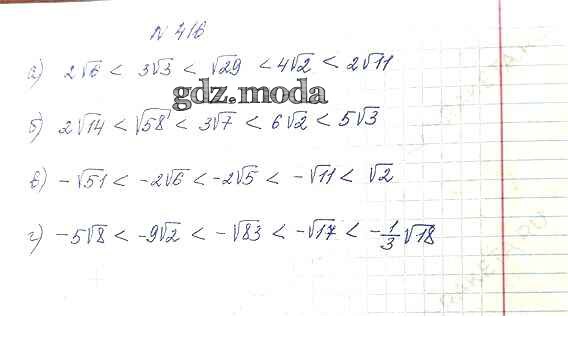 N 416
а) 2√6 < 3√3 < √29 < 4√2 < 2√11
gdz.moda
б) 2√14 < √58 < 3√7 < 6√2 < 5√3
в) -√51 < -2√6 < -2√5 < -√11 < √2
г) -5√8 < -9√2 < -√83 < -√17 < -1/3√18